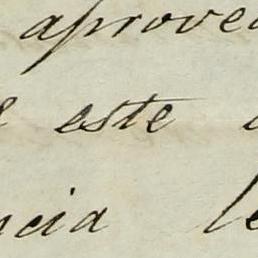 aprove
este
ncia le